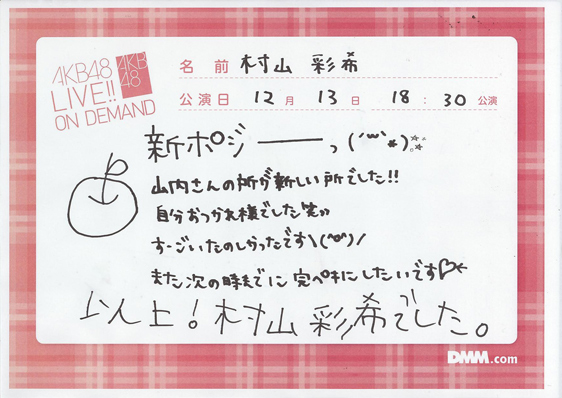 AKB48
LIVE!!
ON DEMAND
AKB
48
名前 村山 彩希
公演日 12月 13日 18:30公演
新ポジ――っ(´꒳`*)
山内さんの所が新しい所でした!!
自分おつかれ様でした笑»
すーごいたのしかったです\(^o^)/
また次の時までに完ペキにしたいです♡
以上!村山彩希でした。
DMM.com